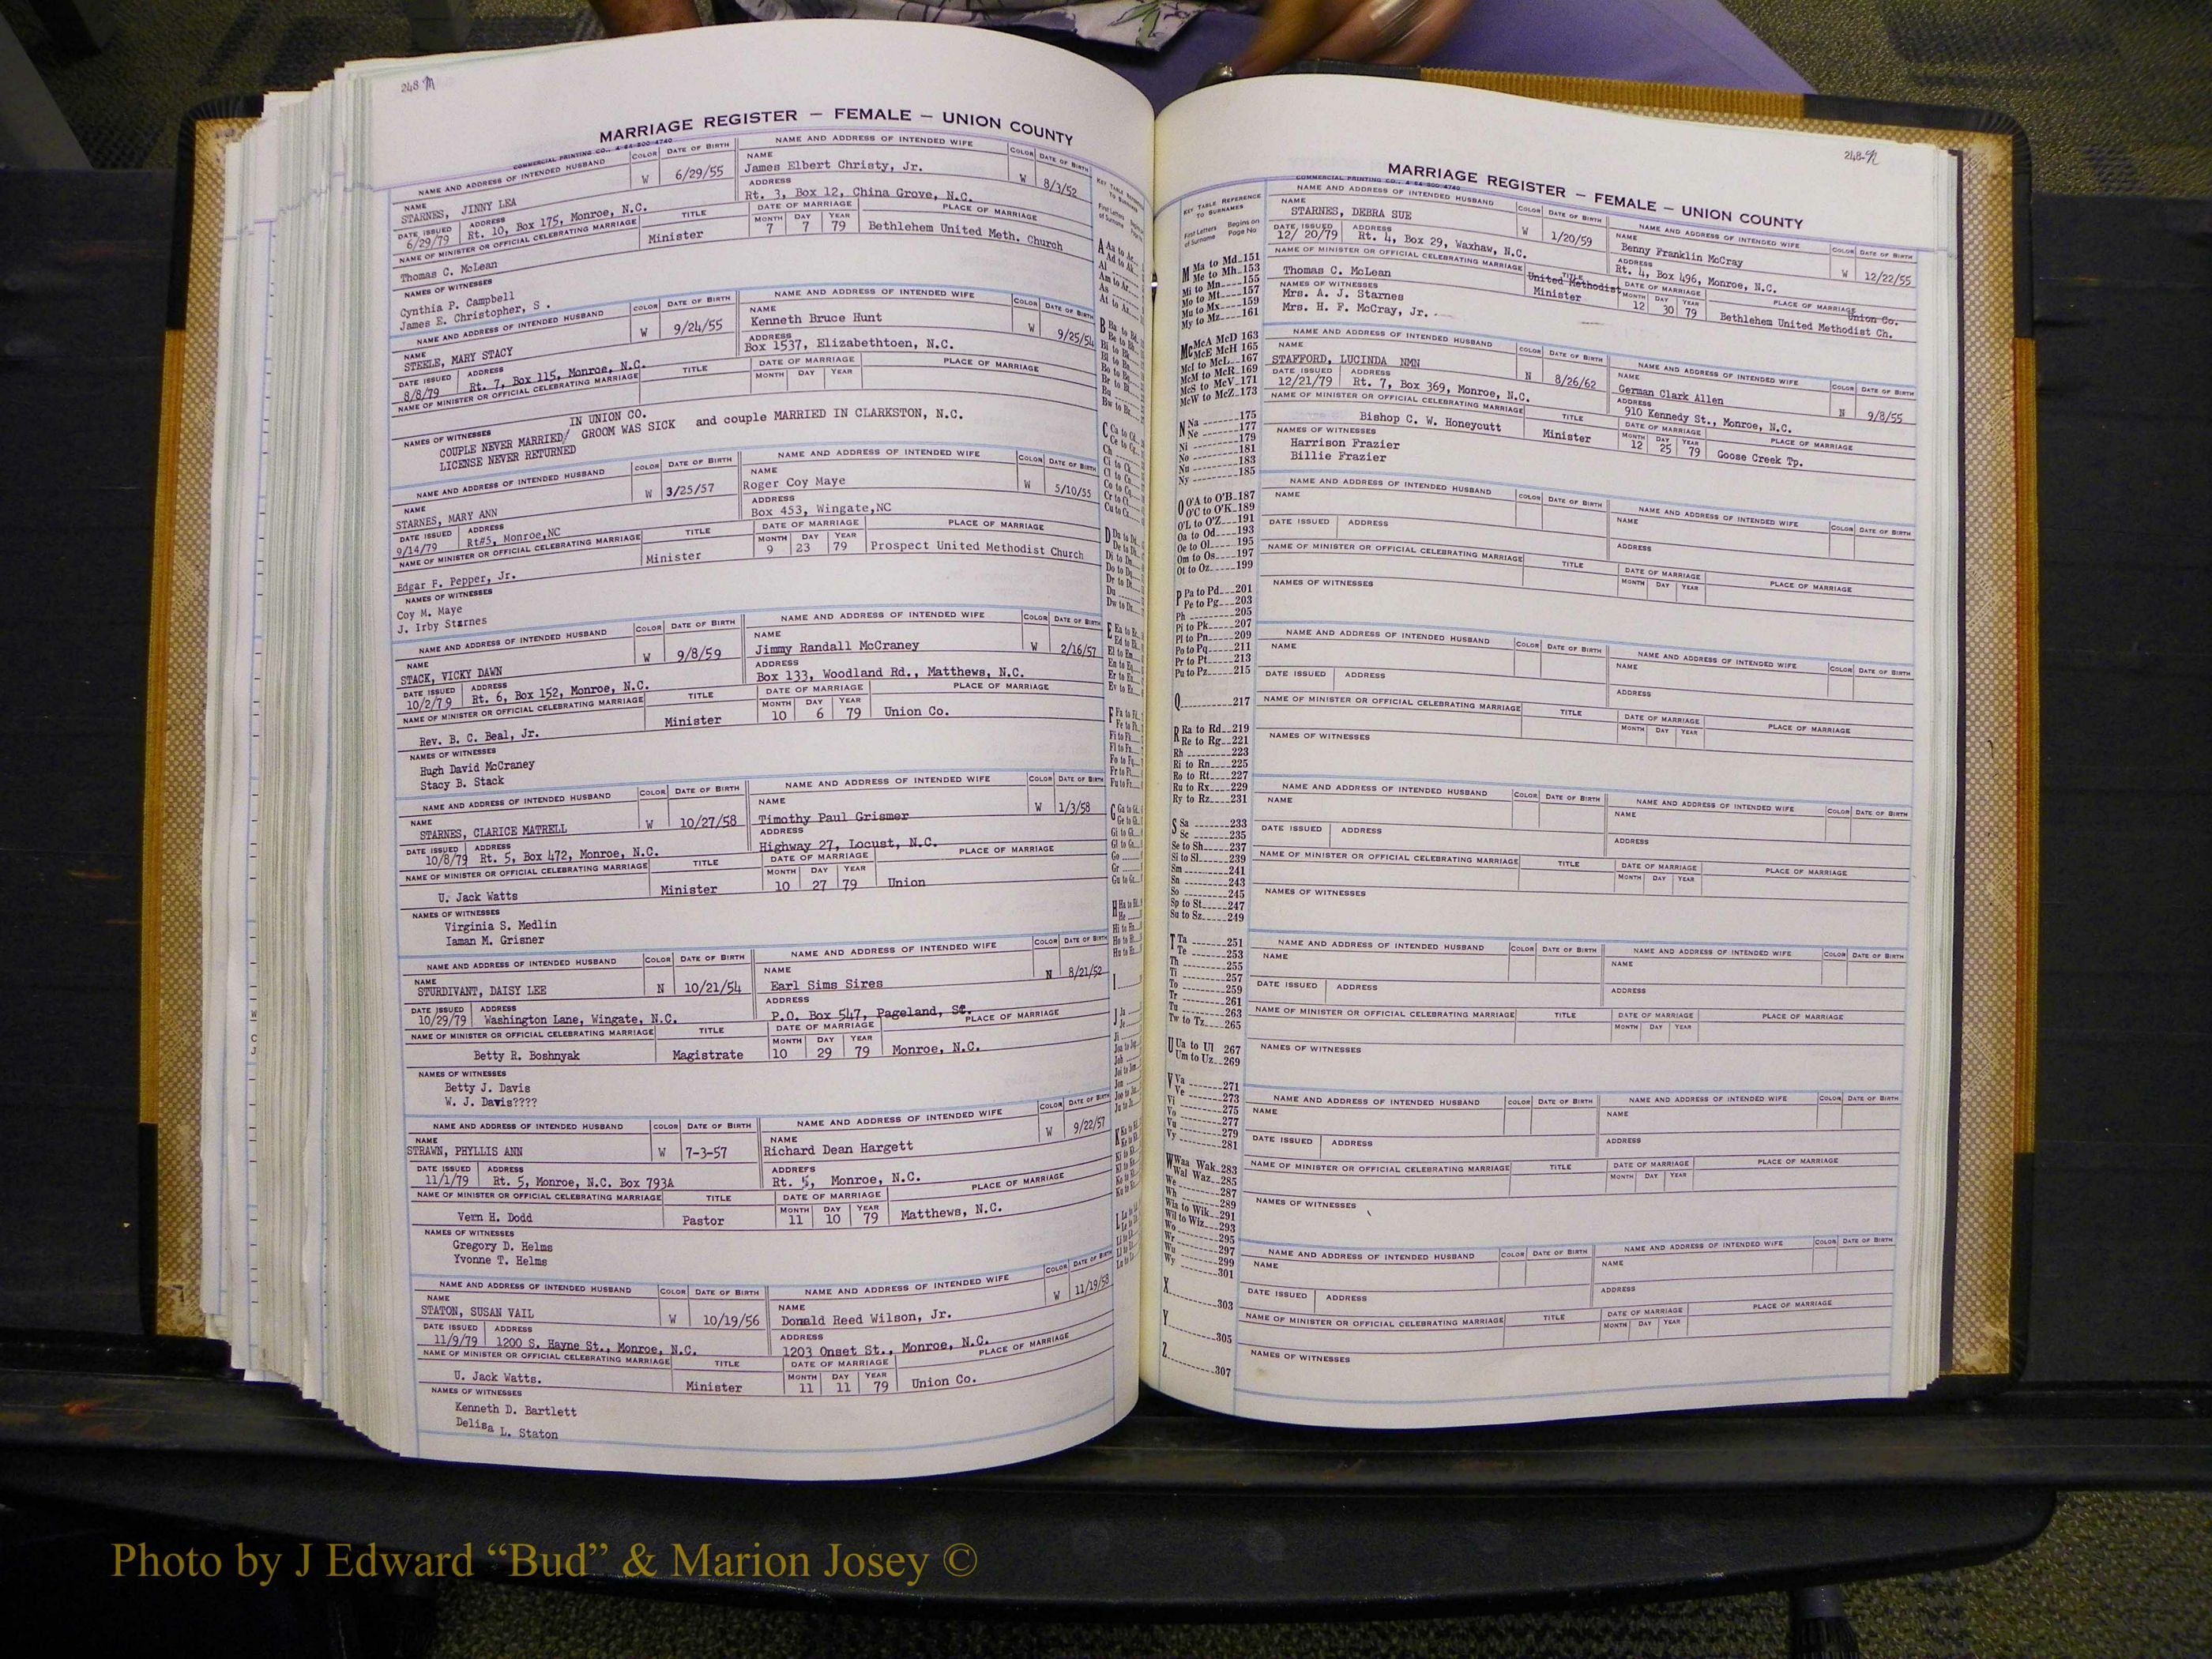 248 M
MARRIAGE REGISTER — FEMALE — UNION COUNTY
COMMERCIAL PRINTING CO., A-64-800-4740
NAME AND ADDRESS OF INTENDED HUSBAND COLOR DATE OF BIRTH NAME AND ADDRESS OF INTENDED WIFE COLOR DATE OF BIRTH
NAME STARNES, JINNY LEA W 6/29/55 NAME James Elbert Christy, Jr. W 8/3/52
DATE ISSUED 6/29/79 ADDRESS Rt. 10, Box 175, Monroe, N.C. ADDRESS Rt. 3, Box 12, China Grove, N.C.
NAME OF MINISTER OR OFFICIAL CELEBRATING MARRIAGE TITLE DATE OF MARRIAGE PLACE OF MARRIAGE
Thomas C. McLean Minister MONTH 7 DAY 7 YEAR 79 Bethlehem United Meth. Church
NAMES OF WITNESSES
Cynthia P. Campbell
James E. Christopher, S .
NAME AND ADDRESS OF INTENDED HUSBAND COLOR DATE OF BIRTH NAME AND ADDRESS OF INTENDED WIFE COLOR DATE OF BIRTH
NAME STEELE, MARY STACY W 9/24/55 NAME Kenneth Bruce Hunt W 9/25/54
DATE ISSUED 8/8/79 ADDRESS Rt. 7, Box 115, Monroe, N.C. ADDRESS Box 1537, Elizabethtoen, N.C.
NAME OF MINISTER OR OFFICIAL CELEBRATING MARRIAGE TITLE DATE OF MARRIAGE PLACE OF MARRIAGE
MONTH DAY YEAR
IN UNION CO.
NAMES OF WITNESSES
COUPLE NEVER MARRIED/ GROOM WAS SICK and couple MARRIED IN CLARKSTON, N.C.
LICENSE NEVER RETURNED
NAME AND ADDRESS OF INTENDED HUSBAND COLOR DATE OF BIRTH NAME AND ADDRESS OF INTENDED WIFE COLOR DATE OF BIRTH
NAME STARNES, MARY ANN W 3/25/57 NAME Roger Coy Maye W 5/10/55
DATE ISSUED 9/14/79 ADDRESS Rt#5, Monroe,NC ADDRESS Box 453, Wingate,NC
NAME OF MINISTER OR OFFICIAL CELEBRATING MARRIAGE TITLE DATE OF MARRIAGE PLACE OF MARRIAGE
Edgar F. Pepper, Jr. Minister MONTH 9 DAY 23 YEAR 79 Prospect United Methodist Church
NAMES OF WITNESSES
Coy M. Maye
J. Irby Starnes
NAME AND ADDRESS OF INTENDED HUSBAND COLOR DATE OF BIRTH NAME AND ADDRESS OF INTENDED WIFE COLOR DATE OF BIRTH
NAME STACK, VICKY DAWN W 9/8/59 NAME Jimmy Randall McCraney W 2/16/57
DATE ISSUED 10/2/79 ADDRESS Rt. 6, Box 152, Monroe, N.C. ADDRESS Box 133, Woodland Rd., Matthews, N.C.
NAME OF MINISTER OR OFFICIAL CELEBRATING MARRIAGE TITLE DATE OF MARRIAGE PLACE OF MARRIAGE
Rev. B. C. Beal, Jr. Minister MONTH 10 DAY 6 YEAR 79 Union Co.
NAMES OF WITNESSES
Hugh David McCraney
Stacy B. Stack
NAME AND ADDRESS OF INTENDED HUSBAND COLOR DATE OF BIRTH NAME AND ADDRESS OF INTENDED WIFE COLOR DATE OF BIRTH
NAME STARNES, CLARICE MATRELL W 10/27/58 NAME Timothy Paul Grismer W 1/3/58
DATE ISSUED 10/8/79 ADDRESS Rt. 5, Box 472, Monroe, N.C. ADDRESS Highway 27, Locust, N.C.
NAME OF MINISTER OR OFFICIAL CELEBRATING MARRIAGE TITLE DATE OF MARRIAGE PLACE OF MARRIAGE
U. Jack Watts Minister MONTH 10 DAY 27 YEAR 79 Union
NAMES OF WITNESSES
Virginia S. Medlin
Iaman M. Grisner
NAME AND ADDRESS OF INTENDED HUSBAND COLOR DATE OF BIRTH NAME AND ADDRESS OF INTENDED WIFE COLOR DATE OF BIRTH
NAME STURDIVANT, DAISY LEE N 10/21/54 NAME Earl Sims Sires N 8/21/52
DATE ISSUED 10/29/79 ADDRESS Washington Lane, Wingate, N.C. ADDRESS P.O. Box 547, Pageland, SC.
NAME OF MINISTER OR OFFICIAL CELEBRATING MARRIAGE TITLE DATE OF MARRIAGE PLACE OF MARRIAGE
Betty R. Boshnyak Magistrate MONTH 10 DAY 29 YEAR 79 Monroe, N.C.
NAMES OF WITNESSES
Betty J. Davis
W. J. Davis????
NAME AND ADDRESS OF INTENDED HUSBAND COLOR DATE OF BIRTH NAME AND ADDRESS OF INTENDED WIFE COLOR DATE OF BIRTH
NAME STRAWN, PHYLLIS ANN W 7-3-57 NAME Richard Dean Hargett W 9/22/57
DATE ISSUED 11/1/79 ADDRESS Rt. 5, Monroe, N.C. Box 793A ADDRESS Rt. 5, Monroe, N.C.
NAME OF MINISTER OR OFFICIAL CELEBRATING MARRIAGE TITLE DATE OF MARRIAGE PLACE OF MARRIAGE
Vern H. Dodd Pastor MONTH 11 DAY 10 YEAR 79 Matthews, N.C.
NAMES OF WITNESSES
Gregory D. Helms
Yvonne T. Helms
NAME AND ADDRESS OF INTENDED HUSBAND COLOR DATE OF BIRTH NAME AND ADDRESS OF INTENDED WIFE COLOR DATE OF BIRTH
NAME STATON, SUSAN VAIL W 10/19/56 NAME Donald Reed Wilson, Jr. W 11/19/58
DATE ISSUED 11/9/79 ADDRESS 1200 S. Hayne St., Monroe, N.C. ADDRESS 1203 Onset St., Monroe, N.C.
NAME OF MINISTER OR OFFICIAL CELEBRATING MARRIAGE TITLE DATE OF MARRIAGE PLACE OF MARRIAGE
U. Jack Watts. Minister MONTH 11 DAY 11 YEAR 79 Union Co.
NAMES OF WITNESSES
Kenneth D. Bartlett
Delisa L. Staton
248-N
MARRIAGE REGISTER — FEMALE — UNION COUNTY
COMMERCIAL PRINTING CO., A-64-800-4740
KEY TABLE REFERENCE TO SURNAMES
First Letters of Surname Begins on Page No
M Ma to Md 151
Me to Mh 153
Mi to Mn 155
Mo to Mt 157
Mu to Mx 159
My to Mz 161
Mc McA McD 163
McE McH 165
McI to McL 167
McM to McR 169
McS to McV 171
McW to McZ 173
N Na 175
Ne 177
Ni 179
No 181
Nu 183
Ny 185
O O'A to O'B 187
O'C to O'K 189
O'L to O'Z 191
Oa to Od 193
Oe to Ol 195
Om to Os 197
Ot to Oz 199
P Pa to Pd 201
Pe to Pg 203
Ph 205
Pi to Pk 207
Pl to Pn 209
Po to Pq 211
Pr to Pt 213
Pu to Pz 215
Q 217
R Ra to Rd 219
Re to Rg 221
Rh 223
Ri to Rn 225
Ro to Rt 227
Ru to Rx 229
Ry to Rz 231
S Sa 233
Sc 235
Se to Sh 237
Si to Sl 239
Sm 241
Sn 243
So 245
Sp to St 247
Su to Sz 249
T Ta 251
Te 253
Th 255
Ti 257
To 259
Tr 261
Tu 263
Tw to Tz 265
U Ua to Ul 267
Um to Uz 269
V Va 271
Ve 273
Vi 275
Vo 277
Vu 279
Vy 281
W Waa Wak 283
Wal Waz 285
We 287
Wh 289
Wia to Wik 291
Wil to Wiz 293
Wo 295
Wr 297
Wu 299
Wy 301
X 303
Y 305
Z 307
NAME AND ADDRESS OF INTENDED HUSBAND COLOR DATE OF BIRTH NAME AND ADDRESS OF INTENDED WIFE COLOR DATE OF BIRTH
NAME STARNES, DEBRA SUE W 1/20/59 NAME Benny Franklin McCray W 12/22/55
DATE ISSUED 12/ 20/79 ADDRESS Rt. 4, Box 29, Waxhaw, N.C. ADDRESS Rt. 4, Box 496, Monroe, N.C.
NAME OF MINISTER OR OFFICIAL CELEBRATING MARRIAGE TITLE DATE OF MARRIAGE PLACE OF MARRIAGE
Thomas C. McLean United Methodist Minister MONTH 12 DAY 30 YEAR 79 Union Co. Bethlehem United Methodist Ch.
NAMES OF WITNESSES
Mrs. A. J. Starnes
Mrs. H. F. McCray, Jr.
NAME AND ADDRESS OF INTENDED HUSBAND COLOR DATE OF BIRTH NAME AND ADDRESS OF INTENDED WIFE COLOR DATE OF BIRTH
NAME STAFFORD, LUCINDA NMN N 8/26/62 NAME German Clark Allen N 9/8/55
DATE ISSUED 12/21/79 ADDRESS Rt. 7, Box 369, Monroe, N.C. ADDRESS 910 Kennedy St., Monroe, N.C.
NAME OF MINISTER OR OFFICIAL CELEBRATING MARRIAGE TITLE DATE OF MARRIAGE PLACE OF MARRIAGE
Bishop C. W. Honeycutt Minister MONTH 12 DAY 25 YEAR 79 Goose Creek Tp.
NAMES OF WITNESSES
Harrison Frazier
Billie Frazier
NAME AND ADDRESS OF INTENDED HUSBAND COLOR DATE OF BIRTH NAME AND ADDRESS OF INTENDED WIFE COLOR DATE OF BIRTH
NAME NAME
DATE ISSUED ADDRESS ADDRESS
NAME OF MINISTER OR OFFICIAL CELEBRATING MARRIAGE TITLE DATE OF MARRIAGE PLACE OF MARRIAGE
MONTH DAY YEAR
NAMES OF WITNESSES
NAME AND ADDRESS OF INTENDED HUSBAND COLOR DATE OF BIRTH NAME AND ADDRESS OF INTENDED WIFE COLOR DATE OF BIRTH
NAME NAME
DATE ISSUED ADDRESS ADDRESS
NAME OF MINISTER OR OFFICIAL CELEBRATING MARRIAGE TITLE DATE OF MARRIAGE PLACE OF MARRIAGE
MONTH DAY YEAR
NAMES OF WITNESSES
NAME AND ADDRESS OF INTENDED HUSBAND COLOR DATE OF BIRTH NAME AND ADDRESS OF INTENDED WIFE COLOR DATE OF BIRTH
NAME NAME
DATE ISSUED ADDRESS ADDRESS
NAME OF MINISTER OR OFFICIAL CELEBRATING MARRIAGE TITLE DATE OF MARRIAGE PLACE OF MARRIAGE
MONTH DAY YEAR
NAMES OF WITNESSES
NAME AND ADDRESS OF INTENDED HUSBAND COLOR DATE OF BIRTH NAME AND ADDRESS OF INTENDED WIFE COLOR DATE OF BIRTH
NAME NAME
DATE ISSUED ADDRESS ADDRESS
NAME OF MINISTER OR OFFICIAL CELEBRATING MARRIAGE TITLE DATE OF MARRIAGE PLACE OF MARRIAGE
MONTH DAY YEAR
NAMES OF WITNESSES
NAME AND ADDRESS OF INTENDED HUSBAND COLOR DATE OF BIRTH NAME AND ADDRESS OF INTENDED WIFE COLOR DATE OF BIRTH
NAME NAME
DATE ISSUED ADDRESS ADDRESS
NAME OF MINISTER OR OFFICIAL CELEBRATING MARRIAGE TITLE DATE OF MARRIAGE PLACE OF MARRIAGE
MONTH DAY YEAR
NAMES OF WITNESSES
NAME AND ADDRESS OF INTENDED HUSBAND COLOR DATE OF BIRTH NAME AND ADDRESS OF INTENDED WIFE COLOR DATE OF BIRTH
NAME NAME
DATE ISSUED ADDRESS ADDRESS
NAME OF MINISTER OR OFFICIAL CELEBRATING MARRIAGE TITLE DATE OF MARRIAGE PLACE OF MARRIAGE
MONTH DAY YEAR
NAMES OF WITNESSES
Photo by J Edward “Bud” & Marion Josey ©